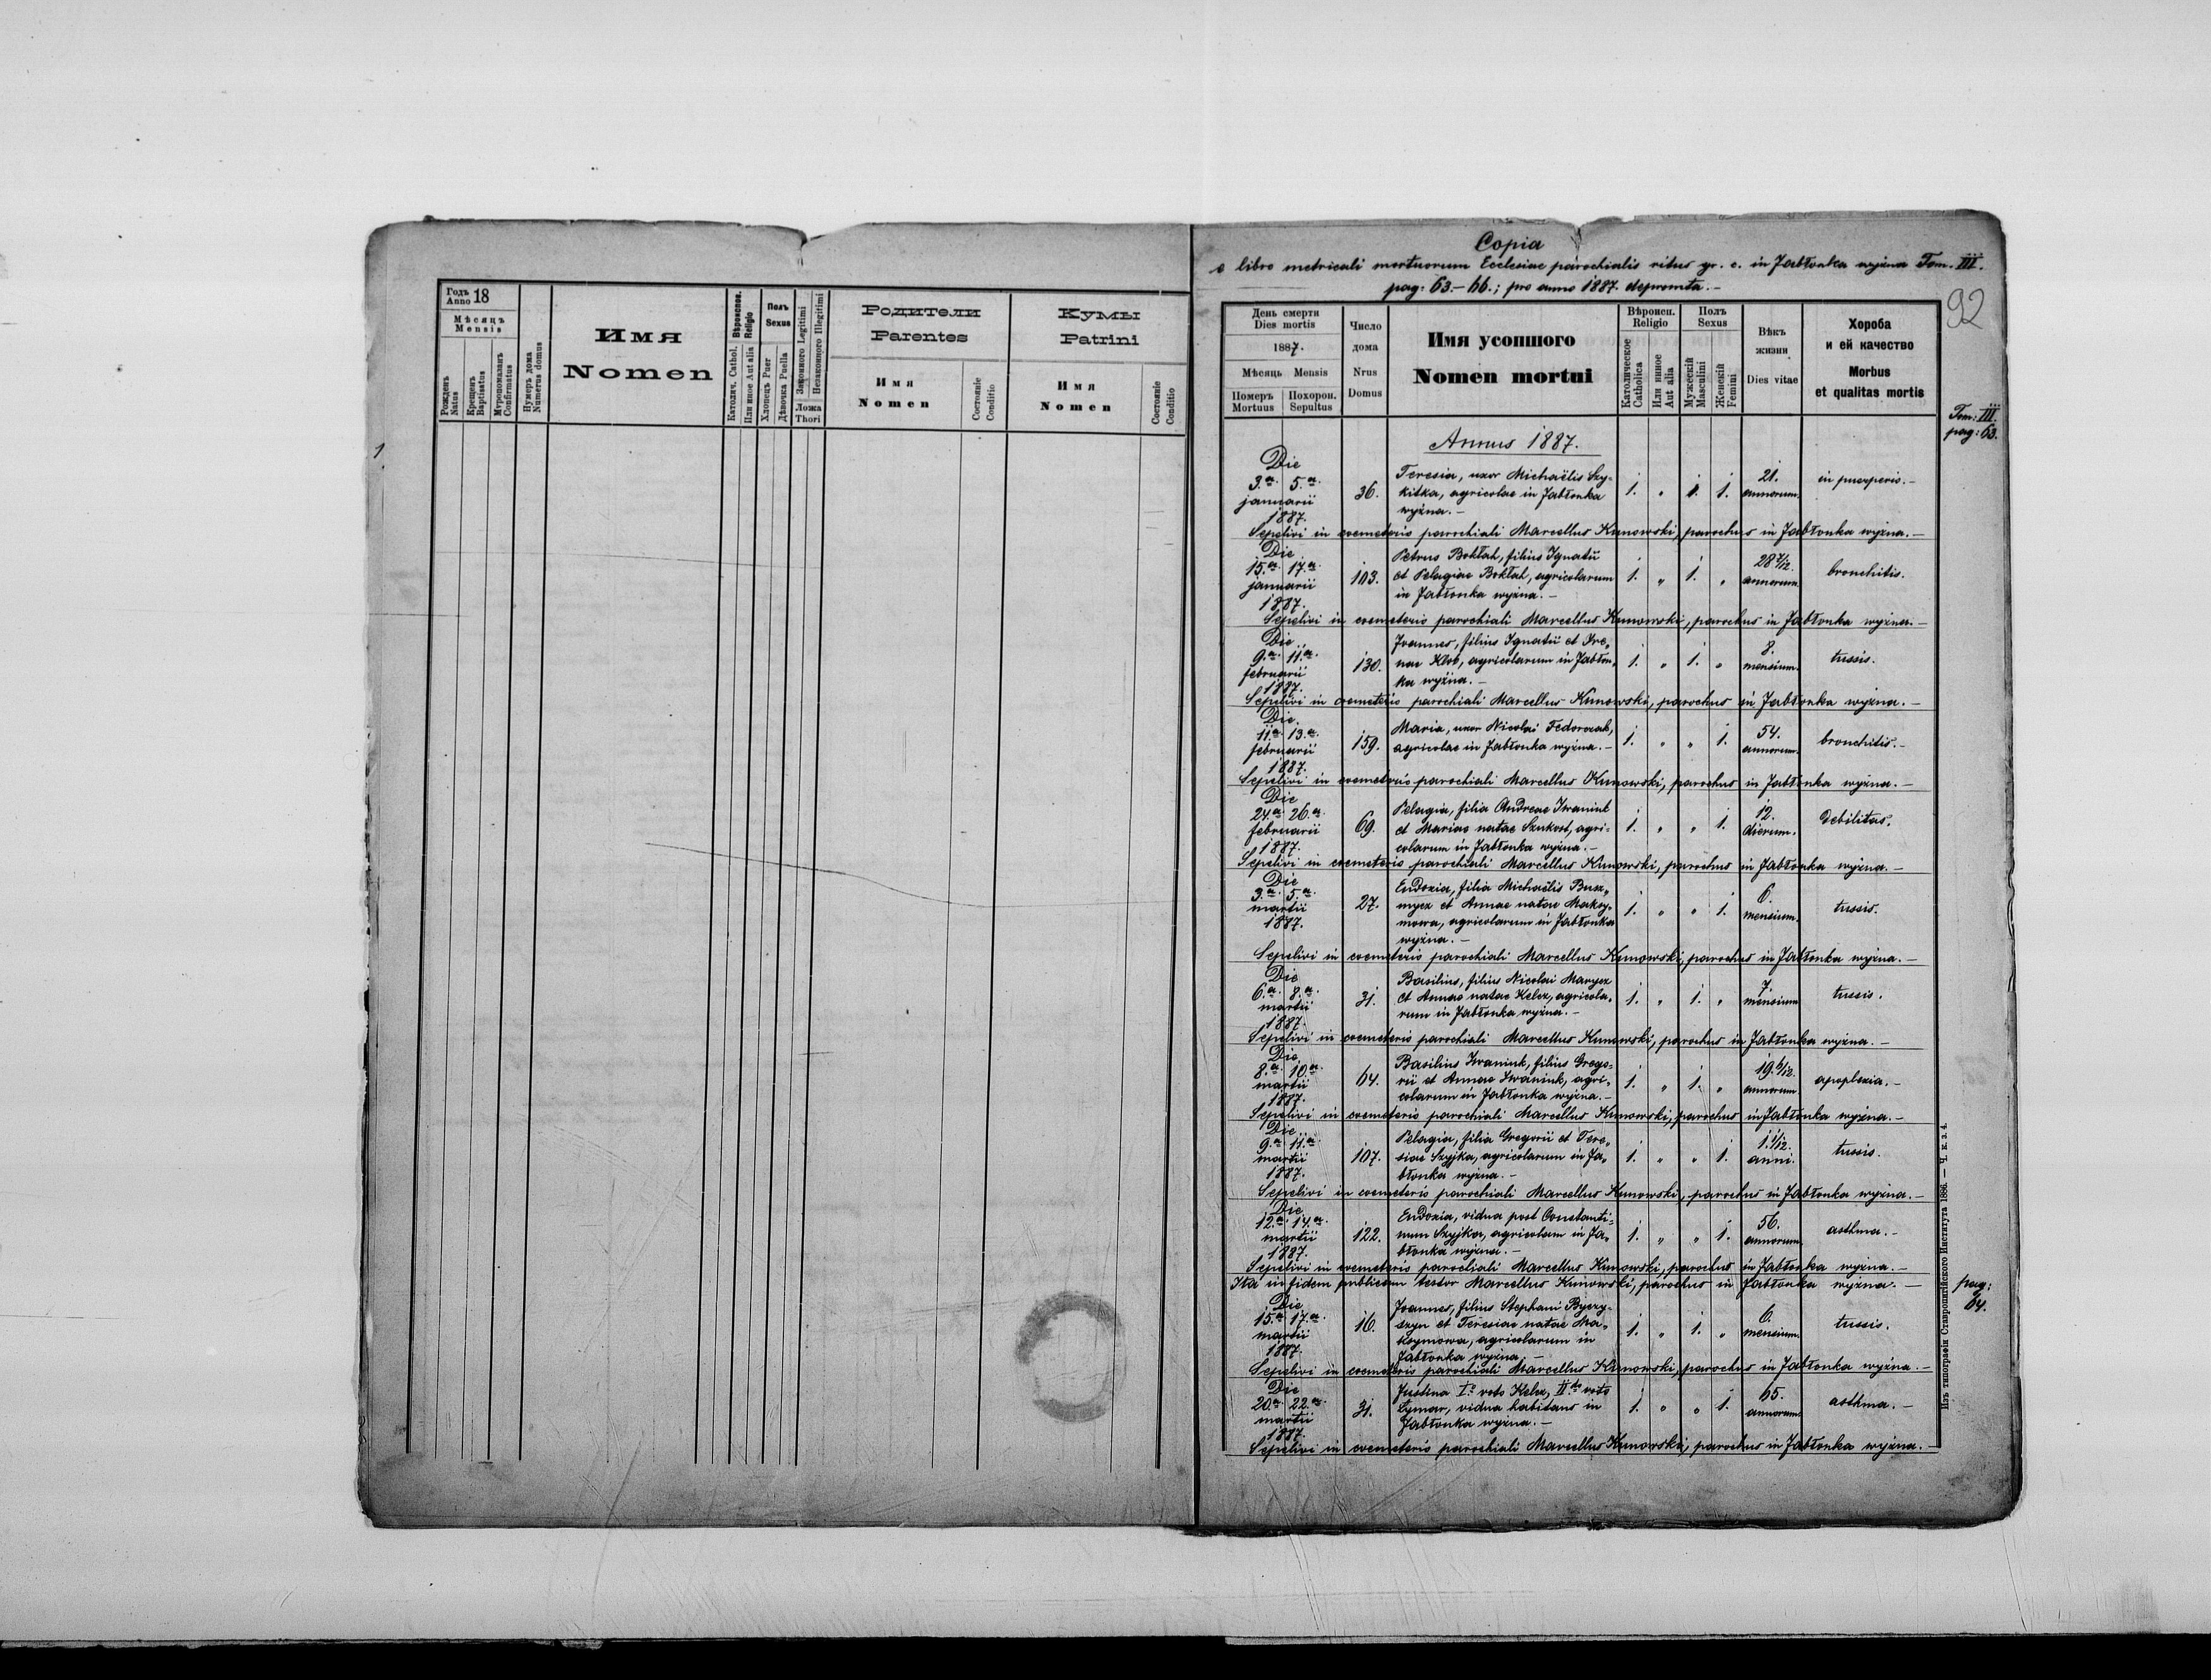 Годъ Anno 18
Мѣсяцъ
Mensis
Рожденъ Natus
Крещенъ Baptisatus
Мvропомазанъ Confirmatus
Нумеръ дома Numerus domus
Имя
Nomen
Вѣроиспов. Religio
Католич. Cathol.
Или иное Aut alia
Полъ
Sexus
Хлопецъ Puer
Дѣвочка Puella
Законного Legitimi
Незаконного Illegitimi
Ложа
Thori
Родители
Parentes
Имя
Nomen
Состояніе
Conditio
Кумы
Patrini
Имя
Nomen
Состояніе
Conditio
Copia
e libro metricali mortuorum Ecclesiae parochialis ritus gr. c. in Jabłonka wyżna Tom. III.
pag: 63.-66.; pro anno 1887. depromta.-
92
День смерти
Dies mortis
1887.
Мѣсяць Mensis
Померъ Mortuus
Похорон. Sepultus
Число
дома
Nrus
Domus
Имя усопшого
Nomen mortui
Вѣроисп.
Religio
Католическое
Catholica
Или иное
Aut alia
Полъ
Sexus
Мужескій
Masculini
Женскій
Femini
Вѣкъ
жизни
Dies vitae
Хороба
и ей качество
Morbus
et qualitas mortis
Tom: III.
pag: 63.
Annus 1887.
Die
3.a 5.a januarii 1887. 36. Teresia, uxor Michaëlis Szy-
kitka, agricolae in Jabłonka
wyżna.- 1. „ 1. 1. 21. annorum. in puerperio.-
Sepelivi in coemeterio parochiali Marcellus Kunowski, parochus in Jabłonka wyżna.-
Die
15.a 17.a januarii 1887. 103. Petrus Bokłah, filius Ignatii
et Pelagiae Bokłah, agricolarum
in Jabłonka wyżna.- 1. „ 1. „ 28 7/12. annorum. bronchitis.
Sepelivi in coemeterio parochiali Marcellus Kunowski, parochus in Jabłonka wyżna.-
Die
9.a 11.a februarii 1887. 130. Joannes, filius Ignatii et Ire„
nae Klob, agricolarum in Jabłon„
ka wyżna.- 1. „ 1. „ 8. mensium. tussis.
Sepelivi in coemeterio parochiali Marcellus Kunowski, parochus in Jabłonka wyżna.-
Die
11.a 13.a februarii 1887. 159. Maria, uxor Nicolai Fedorczak,
agricolae in Jabłonka wyżna.- 1. „ „ 1. 54. annorum. bronchitis.-
Sepelivi in coemeterio parochiali Marcellus Kunowski, parochus in Jabłonka wyżna.-
Die
24.a 26.a februarii 1887. 69. Pelagia, filia Andreae Iwaniuk
et Mariae natae Szukost, agri-
colarum in Jabłonka wyżna.- 1. „ „ 1. 12. dierum. debilitas.
Sepelivi in coemeterio parochiali Marcellus Kunowski, parochus in Jabłonka wyżna.-
Die
3.a 5.a martii 1887. 27. Eudoxia, filia Michaëlis Busz„
mycz et Annae natae Maksy„
mowa, agricolarum in Jabłonka
wyżna.- 1. „ „ 1. 6. mensium. tussis.
Sepelivi in coemeterio parochiali Marcellus Kunowski, parochus in Jabłonka wyżna.-
Die
6.a 8.a martii 1887. 31. Basilius, filius Nicolai Marycz
et Annae natae Kelez, agricola„
rum in Jabłonka wyżna.- 1. „ 1. „ 7. mensium tussis.
Sepelivi in coemeterio parochiali Marcellus Kunowski, parochus in Jabłonka wyżna.-
Die
8.a 10.a martii 1887. 64. Basilius Iwaniuk, filius Grego-
rii et Annae Iwaniuk, agri-
colarum in Jabłonka wyżna.- 1. „ 1. „ 19. 6/12. annorum apoplexia.-
Sepelivi in coemeterio parochiali Marcellus Kunowski, parochus in Jabłonka wyżna.-
Die
9.a 11.a martii 1887. 107. Pelagia, filia Gregorii et Tere„
siae Szyjka, agricolarum in Ja„
błonka wyżna.- 1. „ „ 1. 1. 1/12. anni. tussis.
Sepelivi in coemeterio parochiali Marcellus Kunowski, parochus in Jabłonka wyżna.-
Die
12.a 14.a martii 1887. 122. Eudoxia, vidua post Constanti-
num Szyjka, agricolam in Ja„
błonka wyżna.- 1. „ „ 1. 56. annorum. asthma.-
Sepelivi in coemeterio parochiali Marcellus Kunowski, parochus in Jabłonka wyżna.-
Ita in fidem publicam testor Marcellus Kunowski, parochus in Jabłonka wyżna.-
pag: 64.
Die
15.a 17.a martii 1887. 16. Joannes, filius Stephani Byczy-
szyn et Teresiae natae Ma„
ksymowa, agricolarum in
Jabłonka wyżna.- 1. „ 1. „ 6. mensium. tussis.
Sepelivi in coemeterio parochiali Marcellus Kunowski, parochus in Jabłonka wyżna.-
Die
20.a 22.a martii 1887. 31. Justina I.o voto Kelez, II.do voto
Lymar, vidua habitans in
Jabłonka wyżna.- 1. „ „ 1. 65. annorum. asthma.-
Sepelivi in coemeterio parochiali Marcellus Kunowski, parochus in Jabłonka wyżna.-
Изъ типографіи Ставропигійского Института 1886. — Ч. к. з. 4.